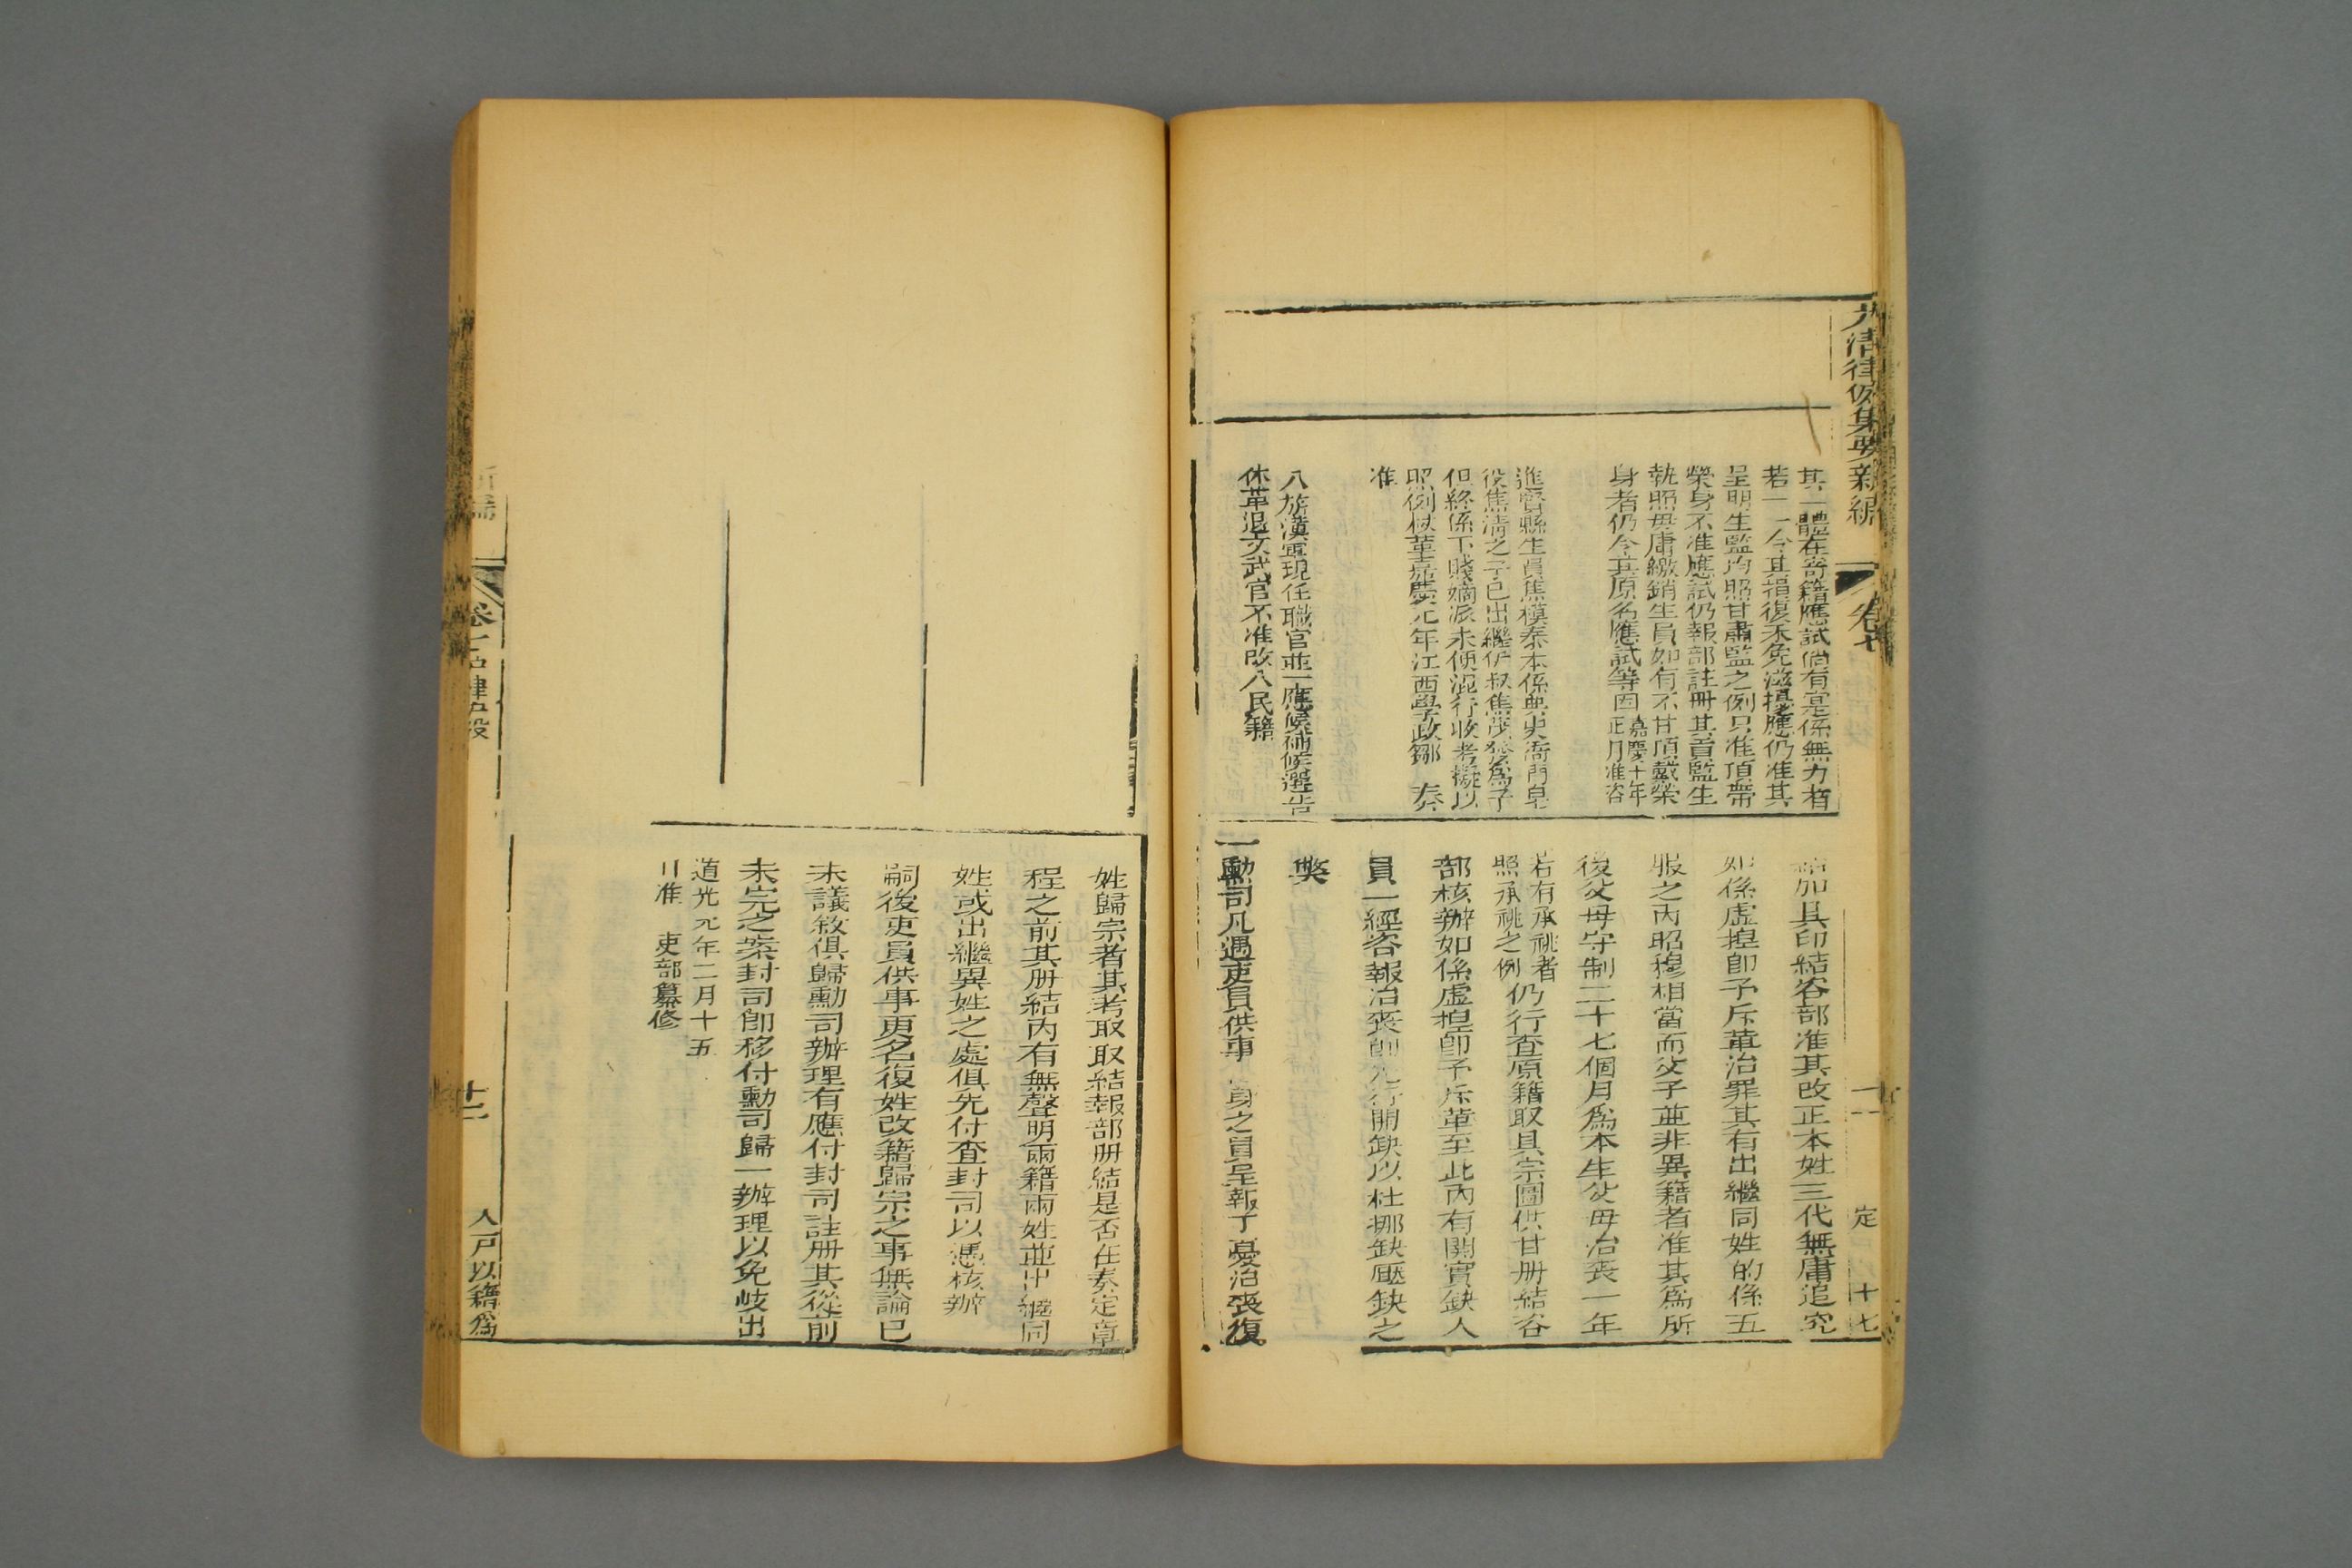 大清律例集要新編
卷七
十一
定
十七
其一體在寄籍應試倘有寔係無力者
若一一令其捐復未免滋擾應仍准其
呈明生監均照甘肅監之例只准頂帶
榮身不准應試仍報部註冊其貢監生
執照毋庸繳銷生員如有不甘頂戴榮
身者仍令其原名應試等因
嘉慶十年
正月准咨
進賢縣生員焦模泰本係典史衙門皂
役焦清之子已出繼伊叔焦茂發為子
但終係下賤嫡派未便混行收考擬以
照例仗革嘉慶元年江西學政鄒 奏
准
八旗漢軍現任職官並一應候補候選告
休革退文武官不准改入民籍
結加具印結咨部准其改正本姓三代無庸追究
如係虛捏卽予斥革治罪其有出繼同姓的係五
服之內昭穆相當而父子並非異籍者准其為所
後父母守制二十七個月為本生父母治喪一年
若有承祧者
照承祧之例
仍行查原籍取具宗圖供甘册結咨
部核辦如係虛捏卽予斥革至此內有開實缺人
員一經咨報治喪卽先行開缺以杜挪缺壓缺之
弊
一勳司凡遇吏員供事 身之員呈報丁憂治喪復
姓歸宗者其考取取結報部册結是否在奏定章
程之前其册結內有無聲明兩籍兩姓並出繼同
姓或出繼異姓之處俱先付查封司以憑核辦
嗣後吏員供事更名復姓改籍歸宗之事無論已
未議敘俱歸勳司辦理有應付封司註册其從前
未完之案封司卽移付勳司歸一辦理以免歧出
道光元年二月十五
日准 吏部纂修
新編
卷七戶律戶役
十一
人戶以籍為